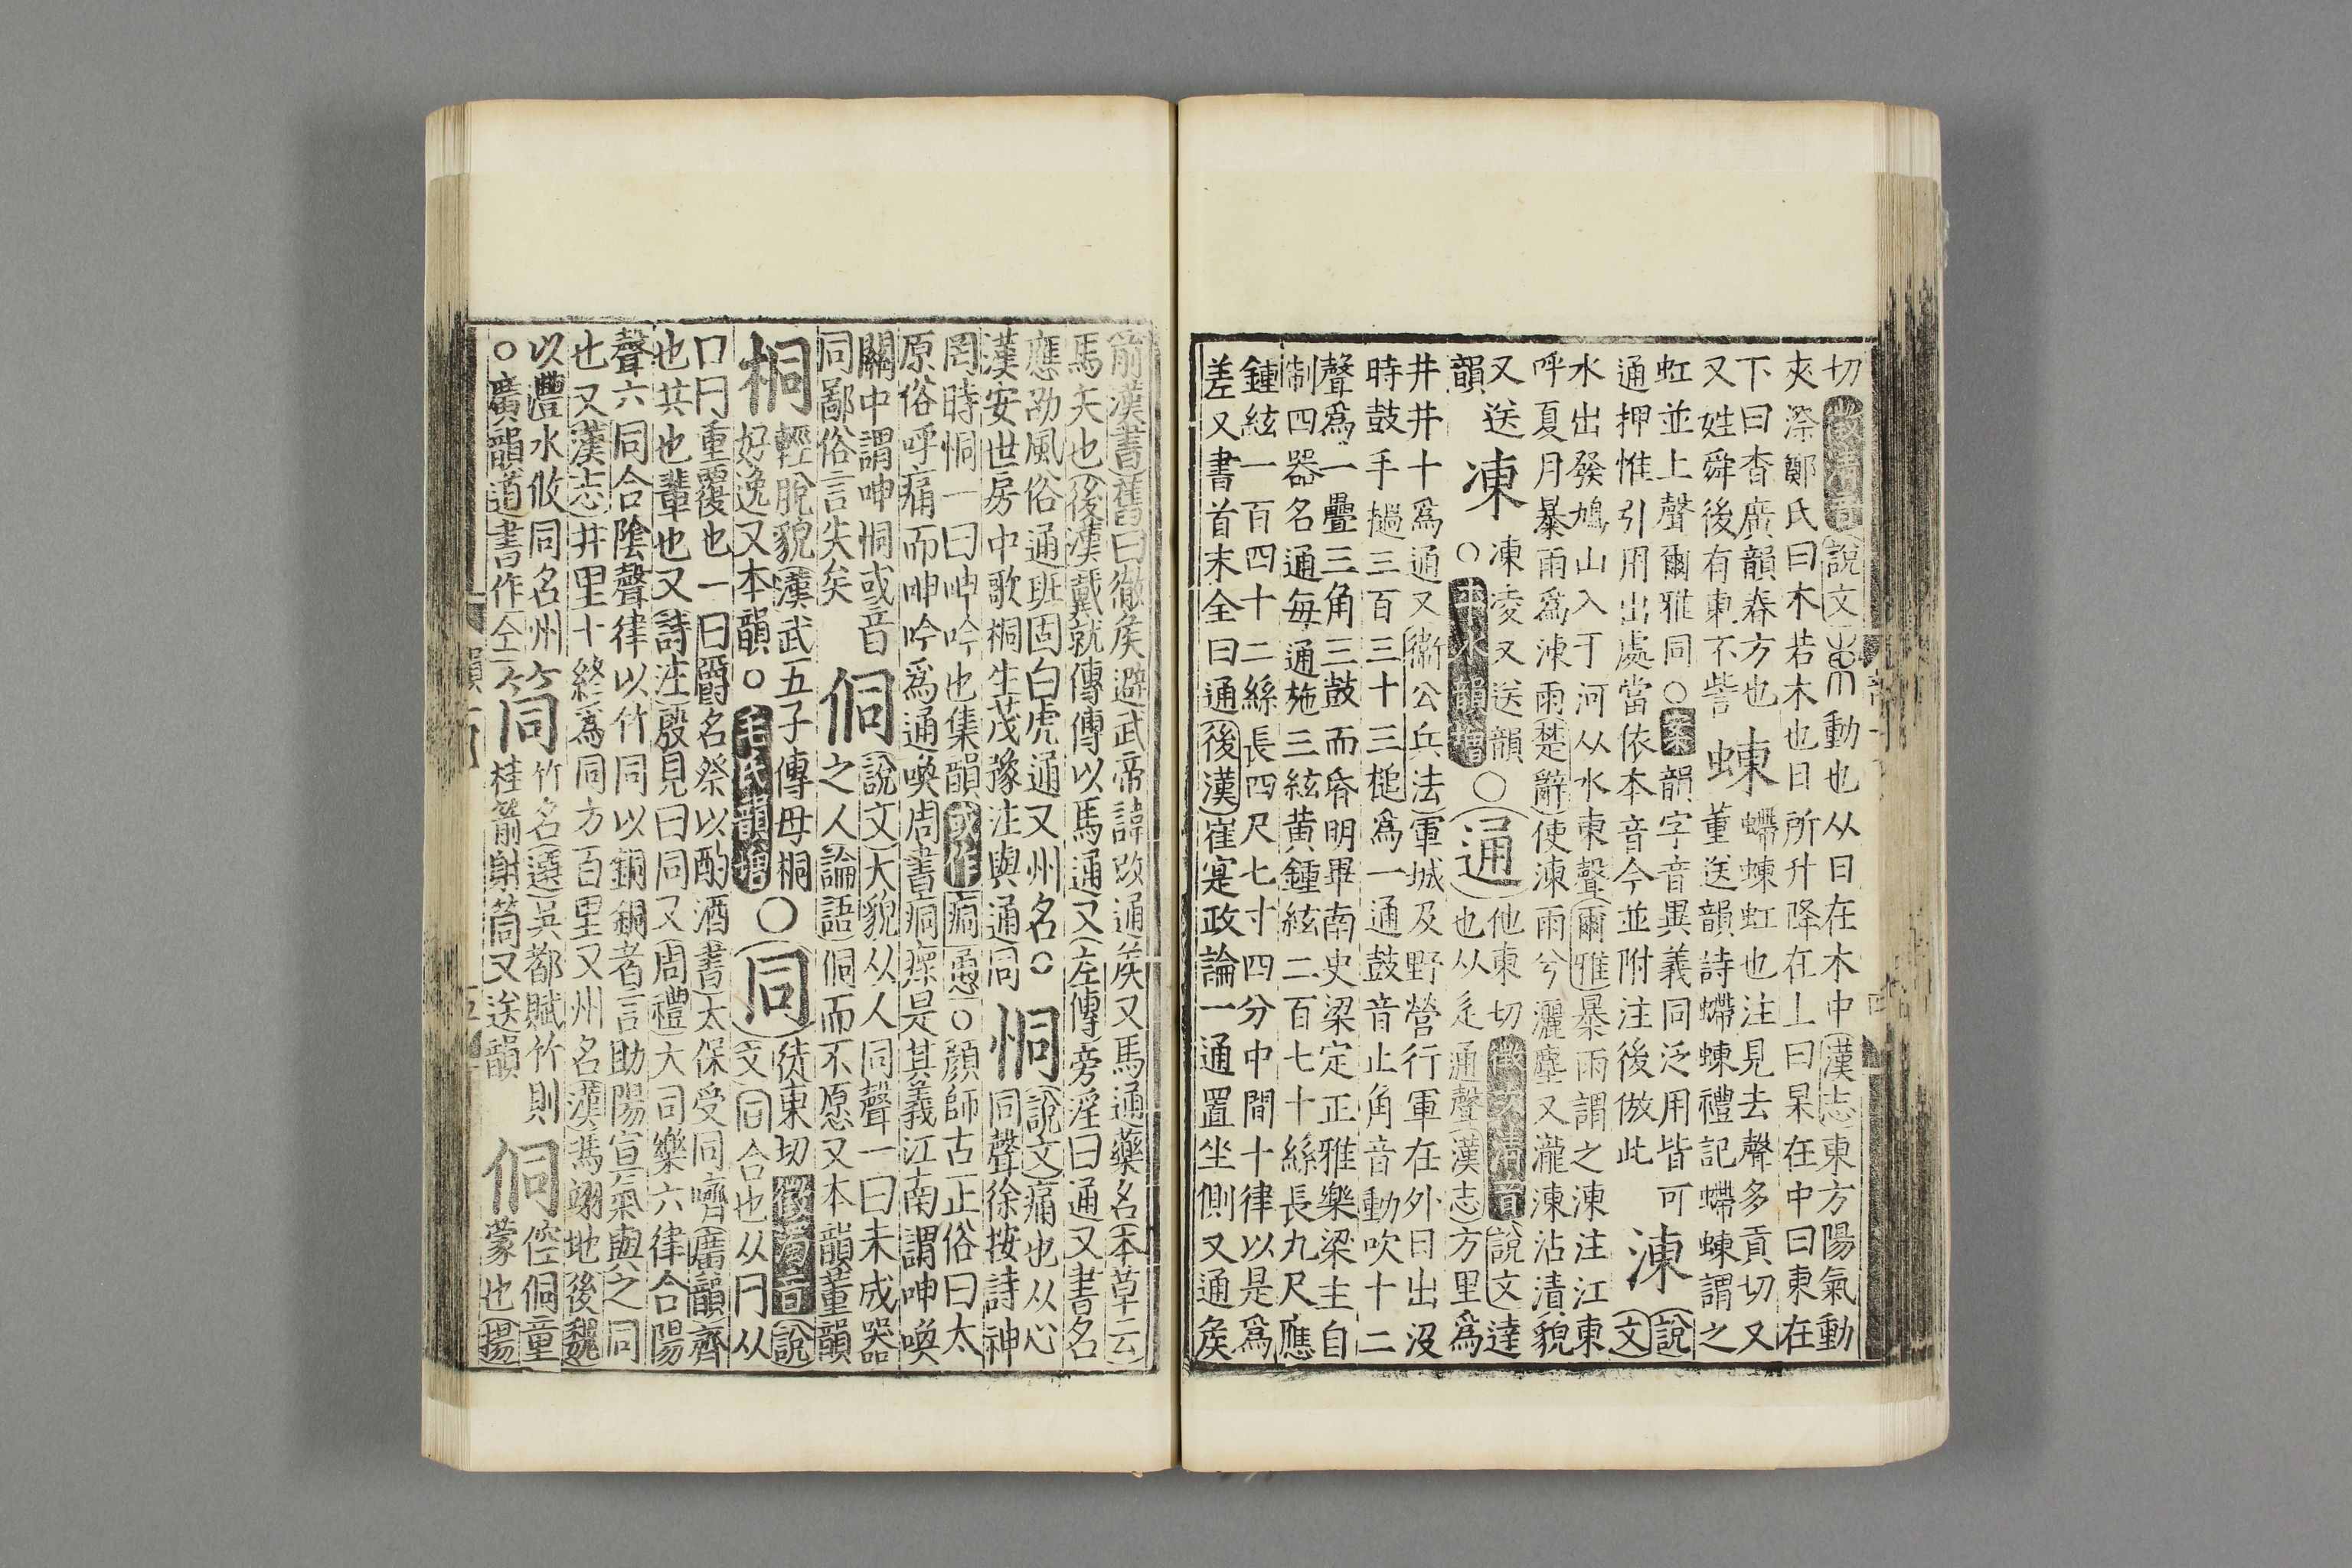 切徵清音說文動也从日在木中漢志東方陽氣動
夾漈鄭氏曰木若木也日所升降在上曰杲在中曰東在
下曰杳廣韻春方也
又姓舜後有東不訾
蝀
螮蝀虹也注見去聲多貢切又
董送韻詩螮蝀禮記螮蝀謂之
虹並上聲爾雅同○案韻字音異義同泛用皆可
通押惟引用出處當依本音今並附注後倣此
涷
說
文
水出發鳩山入于河从水東聲爾雅暴雨謂之涷注江東
呼夏月暴雨爲涷雨楚辭使涷雨兮灑塵又瀧涷沾漬貌
又送
韻
凍
凍凌又送韻
○平水韻增
○通
他東切徵次清音說文達
也从辵通聲漢志方里爲
井井十爲通又衞公兵法軍城及野營行軍在外日出沒
時鼓手撾三百三十三槌爲一通鼓音止角音動吹十二
聲爲一疊三角三鼓而昏明畢南史梁定正雅樂梁主自
制四器名通每通施三絃黃鍾絃二百七十絲長九尺應
鍾絃一百四十二絲長四尺七寸四分中間十律以是爲
差又書首末全曰通後漢崔寔政論一通置坐側又通矦
前漢書舊曰徹矦避武帝諱改通矦又馬通藥名本草云
馬矢也後漢戴就傳傳以馬通又左傳旁淫曰通又書名
應劭風俗通班固白虎通又州名○
漢安世房中歌桐生茂豫注與通同
恫
說文痛也从心
同聲徐按詩神
罔時恫一曰呻吟也集韻或作痌㣚○顔師古正俗曰太
原俗呼痛而呻吟爲通喚周書痌瘝是其義江南謂呻喚
關中謂呻恫或音
同鄙俗言失矣
侗
說文大貌从人同聲一曰未成器
之人論語侗而不愿又本韻董韻
桐
輕脫貌漢武五子傳母桐
好逸又本韻○毛氏韻增
○同
徒東切徵濁音說
文同合也从冂从
口冂重覆也一曰爵名祭以酌酒書太保受同嚌廣韻齊
也共也輩也又詩注殷見曰同又周禮大司樂六律合陽
聲六同合陰聲律以竹同以銅銅者言助陽宣氣與之同
也又漢志井里十終爲同方百里又州名漢馮翊地後魏
以灃水攸同名州
○廣韻道書作仝
筒
竹名選吳都賦竹則
桂箭射筒又送韻
侗
倥侗童
蒙也揚